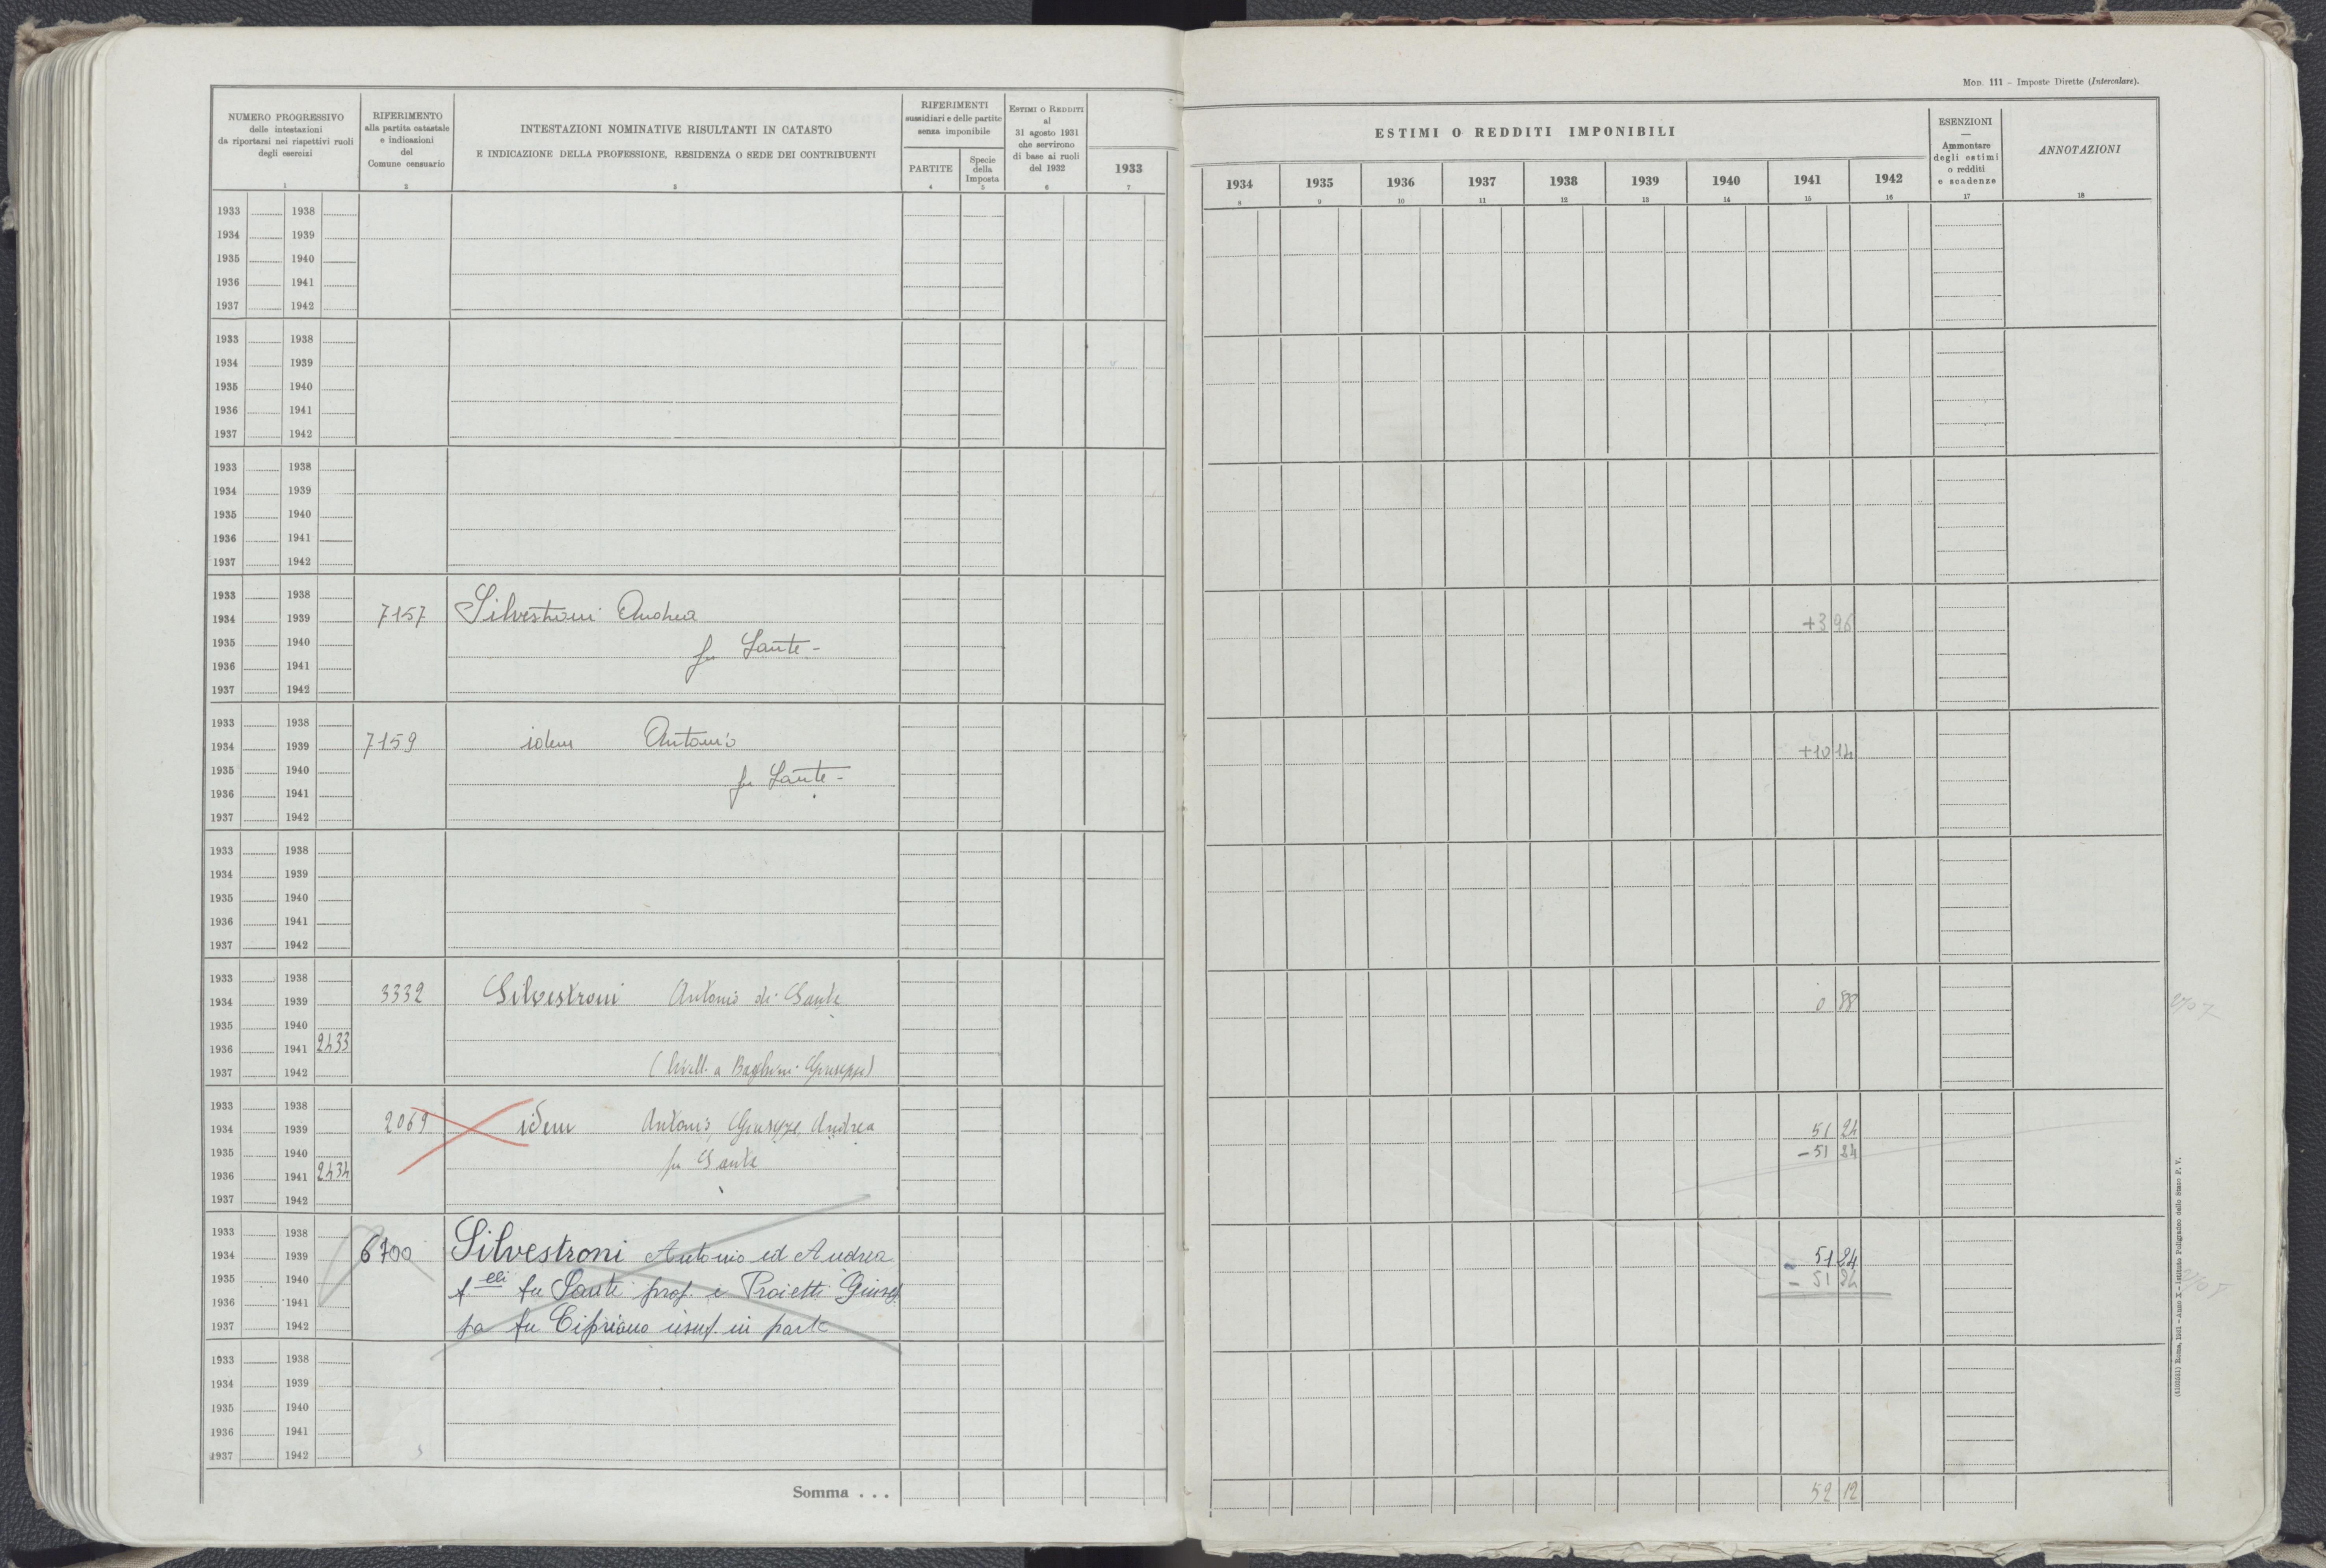 Mod. 111 – Imposte Dirette (Intercalare).
NUMERO PROGRESSIVO
delle intestazioni
da riportarsi nei rispettivi ruoli
degli esercizi
1
RIFERIMENTO
alla partita catastale
e indicazioni
del
Comune censuario
2
INTESTAZIONI NOMINATIVE RISULTANTI IN CATASTO
E INDICAZIONE DELLA PROFESSIONE, RESIDENZA O SEDE DEI CONTRIBUENTI
3
RIFERIMENTI
sussidiari e delle partite
senza imponibile
PARTITE
4
Specie
della
Imposta
5
Estimi o Redditi
al
31 agosto 1931
che servirono
di base ai ruoli
del 1932
6
1933
7
ESTIMI O REDDITI IMPONIBILI
1934 1935 1936 1937 1938 1939 1940 1941 1942
8 9 10 11 12 13 14 15 16
ESENZIONI
—
Ammontare
degli estimi
o redditi
e scadenze
17
ANNOTAZIONI
18
1933 1938
1934 1939
1935 1940
1936 1941
1937 1942
1933 1938
1934 1939
1935 1940
1936 1941
1937 1942
1933 1938
1934 1939
1935 1940
1936 1941
1937 1942
1933 1938
1934 1939 7157 Silvestroni Andrea +3 96
1935 1940 fu Sante -
1936 1941
1937 1942
1933 1938
1934 1939 7159 idem Antonio +10 14
1935 1940 fu Sante -
1936 1941
1937 1942
1933 1938
1934 1939
1935 1940
1936 1941
1937 1942
1933 1938
1934 1939 3332 Silvestroni Antonio di Sante 0 88
1935 1940
1936 1941 2433
1937 1942 (livell. a Giuseppe)
1933 1938
1934 1939 2069 idem Antonio, Giuseppe, Andrea 51 24
1935 1940 fu Sante -51 24
1936 1941 2434
1937 1942
1933 1938
1934 1939 6700 Silvestroni Antonio ed Andrea 51 24
1935 1940 f.lli fu Sante prop. e Proietti Giusep - 51 24
1936 1941
1937 1942 pa fu Cipriano usuf. in parte
1933 1938
1934 1939
1935 1940
1936 1941
1937 1942
Somma . . . 52 12
Roma, 1931 – Anno X – Istituto Poligrafico dello Stato P. V.